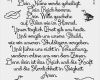 Dein Name werde geheiligt.
Dein Reich komme.
Dein Wille geschehe
wie im Himmel, so auf Erden.
Unser tägliches Brot gib uns heute.
Und vergib uns unsere Schuld,
wie auch wir vergeben unsern Schuldigern.
Und führe uns nicht in Versuchung,
sondern erlöse uns von dem Bösen.
Denn dein ist das Reich und die Kraft
und die Herrlichkeit in Ewigkeit.
Amen.